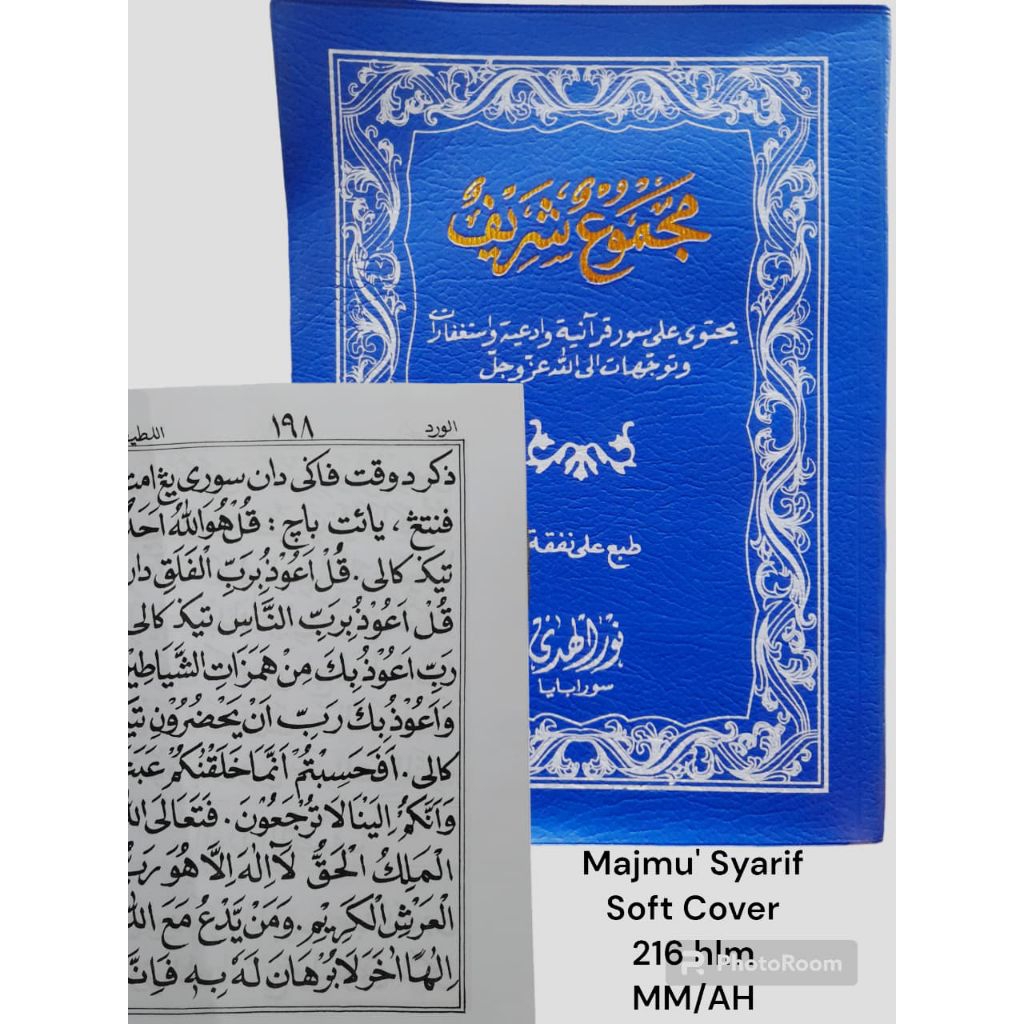 مَجْمُوْعٌ شَرِيْفٌ
يحتوى على سور قرآنية وادعية واستغفارات
وتوجّهات الى الله عزّ وجلّ
طبع على نفقة
نور الهدى
سورابايا
الورد ١٩٨
ذكر دوقت فاكى دان سورى يڠ
فنتڠ، يائت باچ : قُلْ هُوَاللهُ اَحَدٌ
تيݢ كالى. قُلْ اَعُوْذُ بِرَبِّ الْفَلَقِ دان
قُلْ اَعُوْذُ بِرَبِّ النَّاسِ تيݢ كالى
رَبِّ اَعُوْذُ بِكَ مِنْ هَمَزَاتِ الشَّيَاطِيْنِ
وَاَعُوْذُ بِكَ رَبِّ اَنْ يَحْضُرُوْنِ
كالى. اَفَحَسِبْتُمْ اَنَّمَا خَلَقْنٰكُمْ
وَاَنَّكُمْ اِلَيْنَا لَا تُرْجَعُوْنَ. فَتَعَالَى
الْمَلِكُ الْحَقُّ لَآ اِلٰهَ اِلَّا هُوَ رَبُّ
الْعَرْشِ الْكَرِيْمِ. وَمَنْ يَدْعُ مَعَ
اِلٰهًا اٰخَرَ لَا بُرْهَانَ لَهُ بِهِ فَاِنَّ
Majmu' Syarif
Soft Cover
216 hlm
PhotoRoom
MM/AH